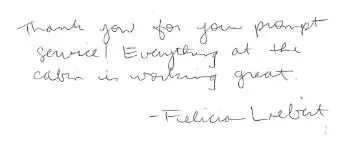 Thank you for your prompt
service! Everything at the
cabin is working great.
-Felicia Liebert